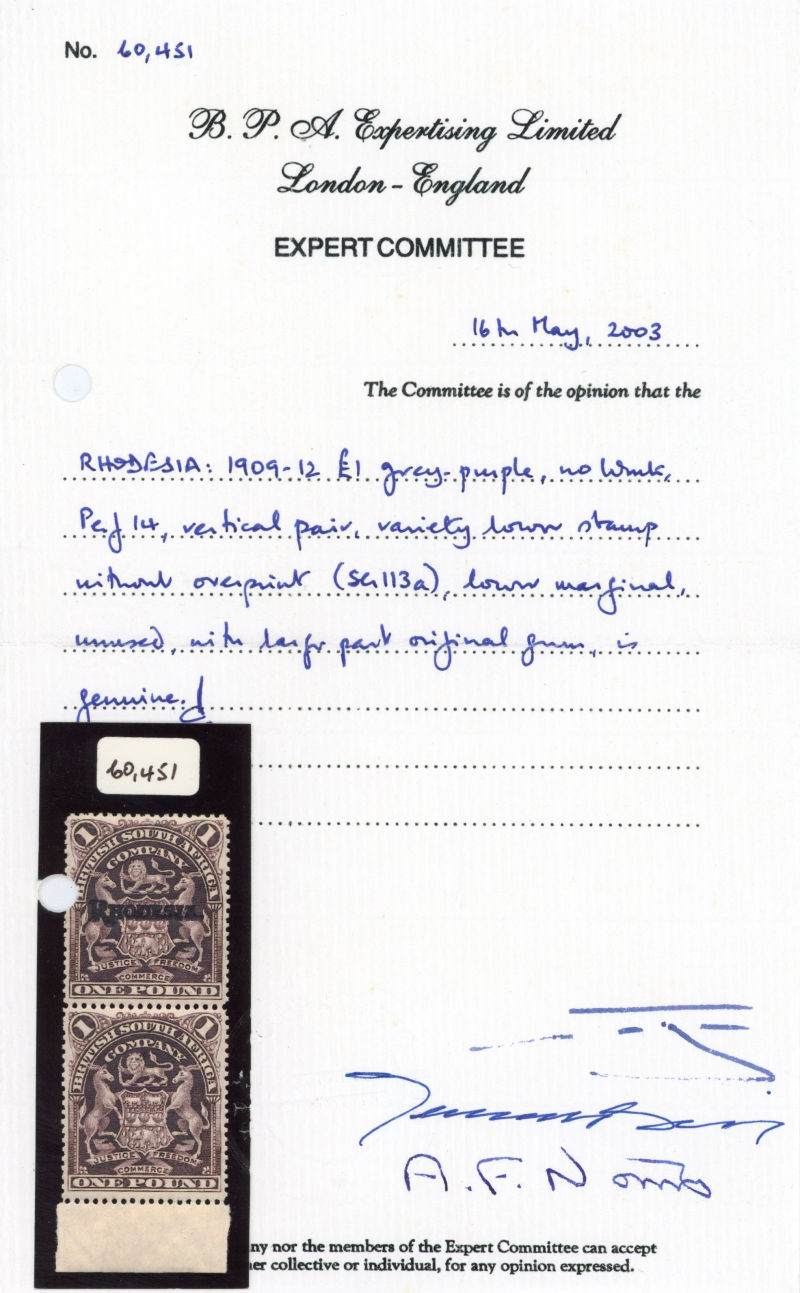 No. 60,451
B. P. A. Expertising Limited
London - England
EXPERT COMMITTEE
16th May, 2003
The Committee is of the opinion that the
RHODESIA: 1909-12 £1 grey-purple, no Wmk,
Perf 14, vertical pair, variety lower stamp
without overprint (SG113a), lower marginal,
unused, with large part original gum, is
genuine.
60,451
1 1
BRITISH SOUTH AFRICA
COMPANY
RHODESIA.
JUSTICE FREEDOM
COMMERCE
ONE POUND
1 1
BRITISH SOUTH AFRICA
COMPANY
JUSTICE FREEDOM
COMMERCE
ONE POUND
A. F. N
ny nor the members of the Expert Committee can accept
her collective or individual, for any opinion expressed.